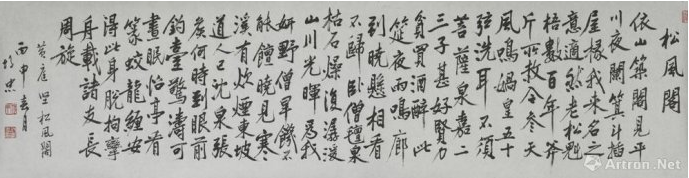 松風閣
依山築閣見平
川夜闌箕斗插
屋椽我來名之
意適然老松魁
梧數百年斧
斤所赦今參天
風鳴媧皇五十
弦洗耳不須
菩薩泉嘉二
三子甚好賢力
貧買酒醉此
筵夜雨鳴廊
到曉懸相看
不歸臥僧氈泉
枯石燥復潺湲
山川光暉為我
妍野僧旱饑不
能饘曉見寒
溪有炊煙東坡
道人已沈泉張
侯何時到眼前
釣臺驚濤可
晝眠怡亭看
篆蛟龍纏安
得此身脫拘攣
舟載諸友長
周旋
黃庭堅松風閣
丙申春月
Artron.Net